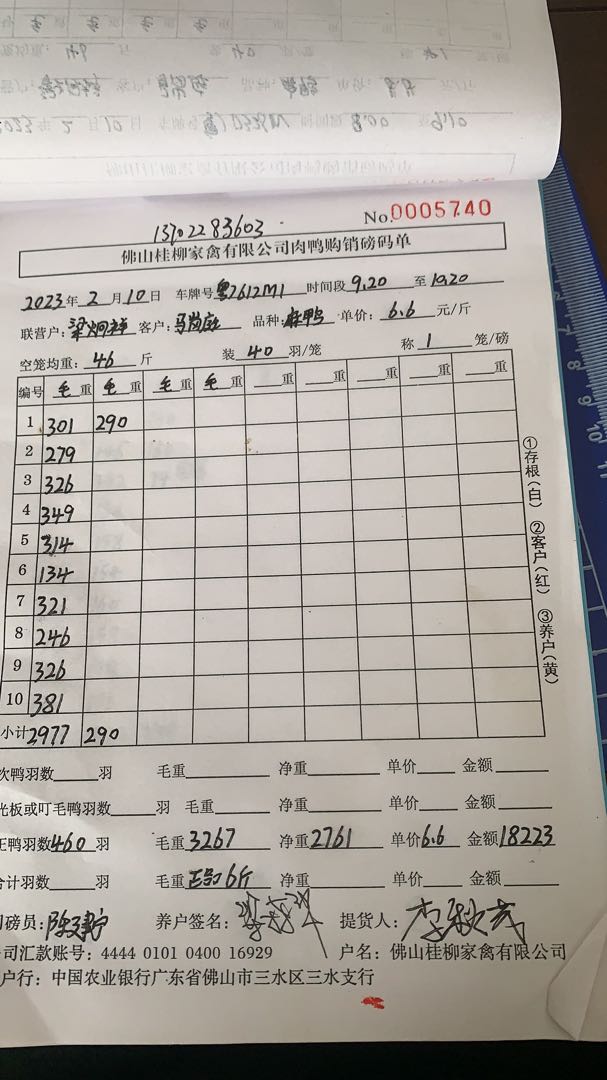 13702283603
No.0005740
佛山桂柳家禽有限公司肉鸭购销磅码单
2023年2月10日 车牌号粤2612M1 时间段9.20至10.20
联营户: 客户: 品种:麻鸭 单价:6.6元/斤
空笼均重:46斤 装40羽/笼 称1笼/磅
编号 毛重 毛重 毛重 毛重 重 重 重 重
1 301 290
2 279
3 326
4 349
5 314
6 134
7 321
8 246
9 326
10 381
小计 2977 290
次鸭羽数 羽 毛重 净重 单价 金额
光板或叮毛鸭羽数 羽 毛重 净重 单价 金额
正鸭羽数460羽 毛重3267 净重2761 单价6.6 金额18223
合计羽数 羽 毛重 6斤 净重 单价 金额
司磅员: 养户签名: 提货人:
公司汇款账号:4444 0101 0400 16929 户名:佛山桂柳家禽有限公司
开户行:中国农业银行广东省佛山市三水区三水支行
①存根(白) ②客户(红) ③养户(黄)